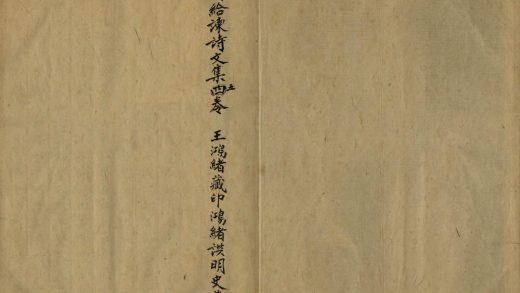 給諫詩文集四五卷 王鴻緒藏印鴻緒譔明史